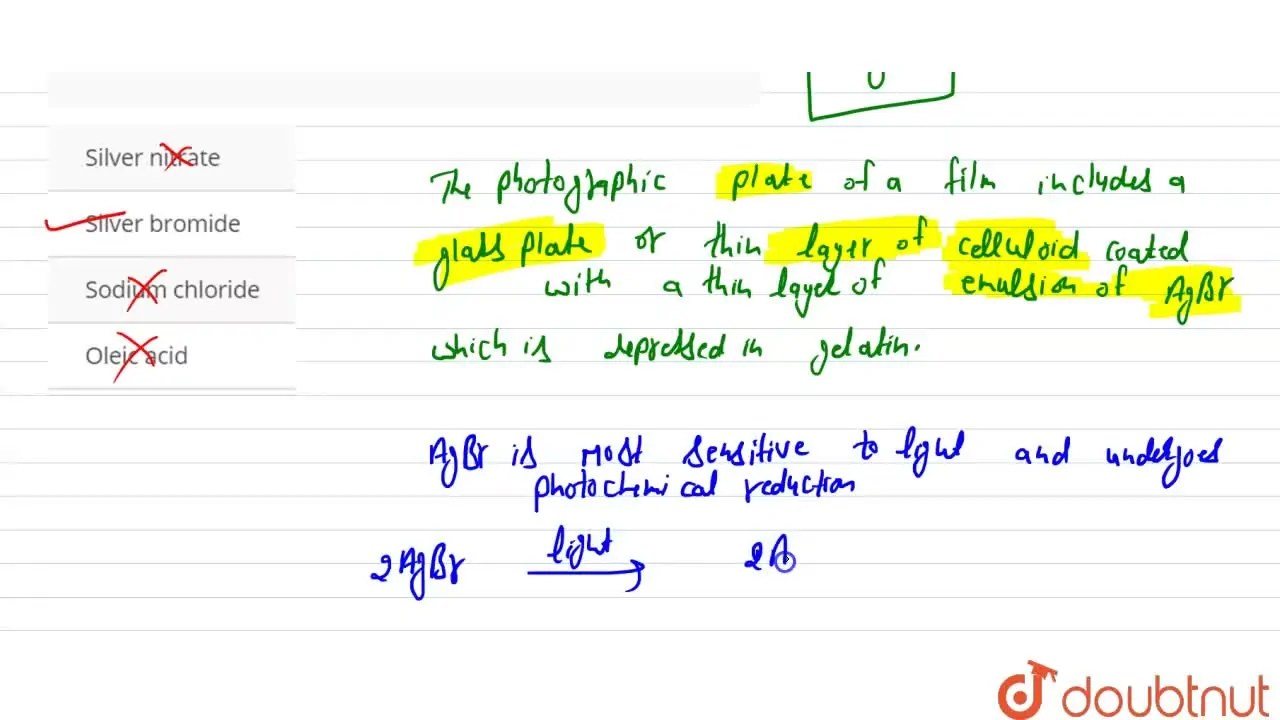 U
Silver nitrate
Silver bromide
Sodium chloride
Oleic acid
The photographic plate of a film includes a
glass plate or thin layer of celluloid coated
with a thin layer of emulsion of AgBr
which is depressed in gelatin.
AgBr is most sensitive to light and undergoes
photochemical reduction
2AgBr light 2A
doubtnut